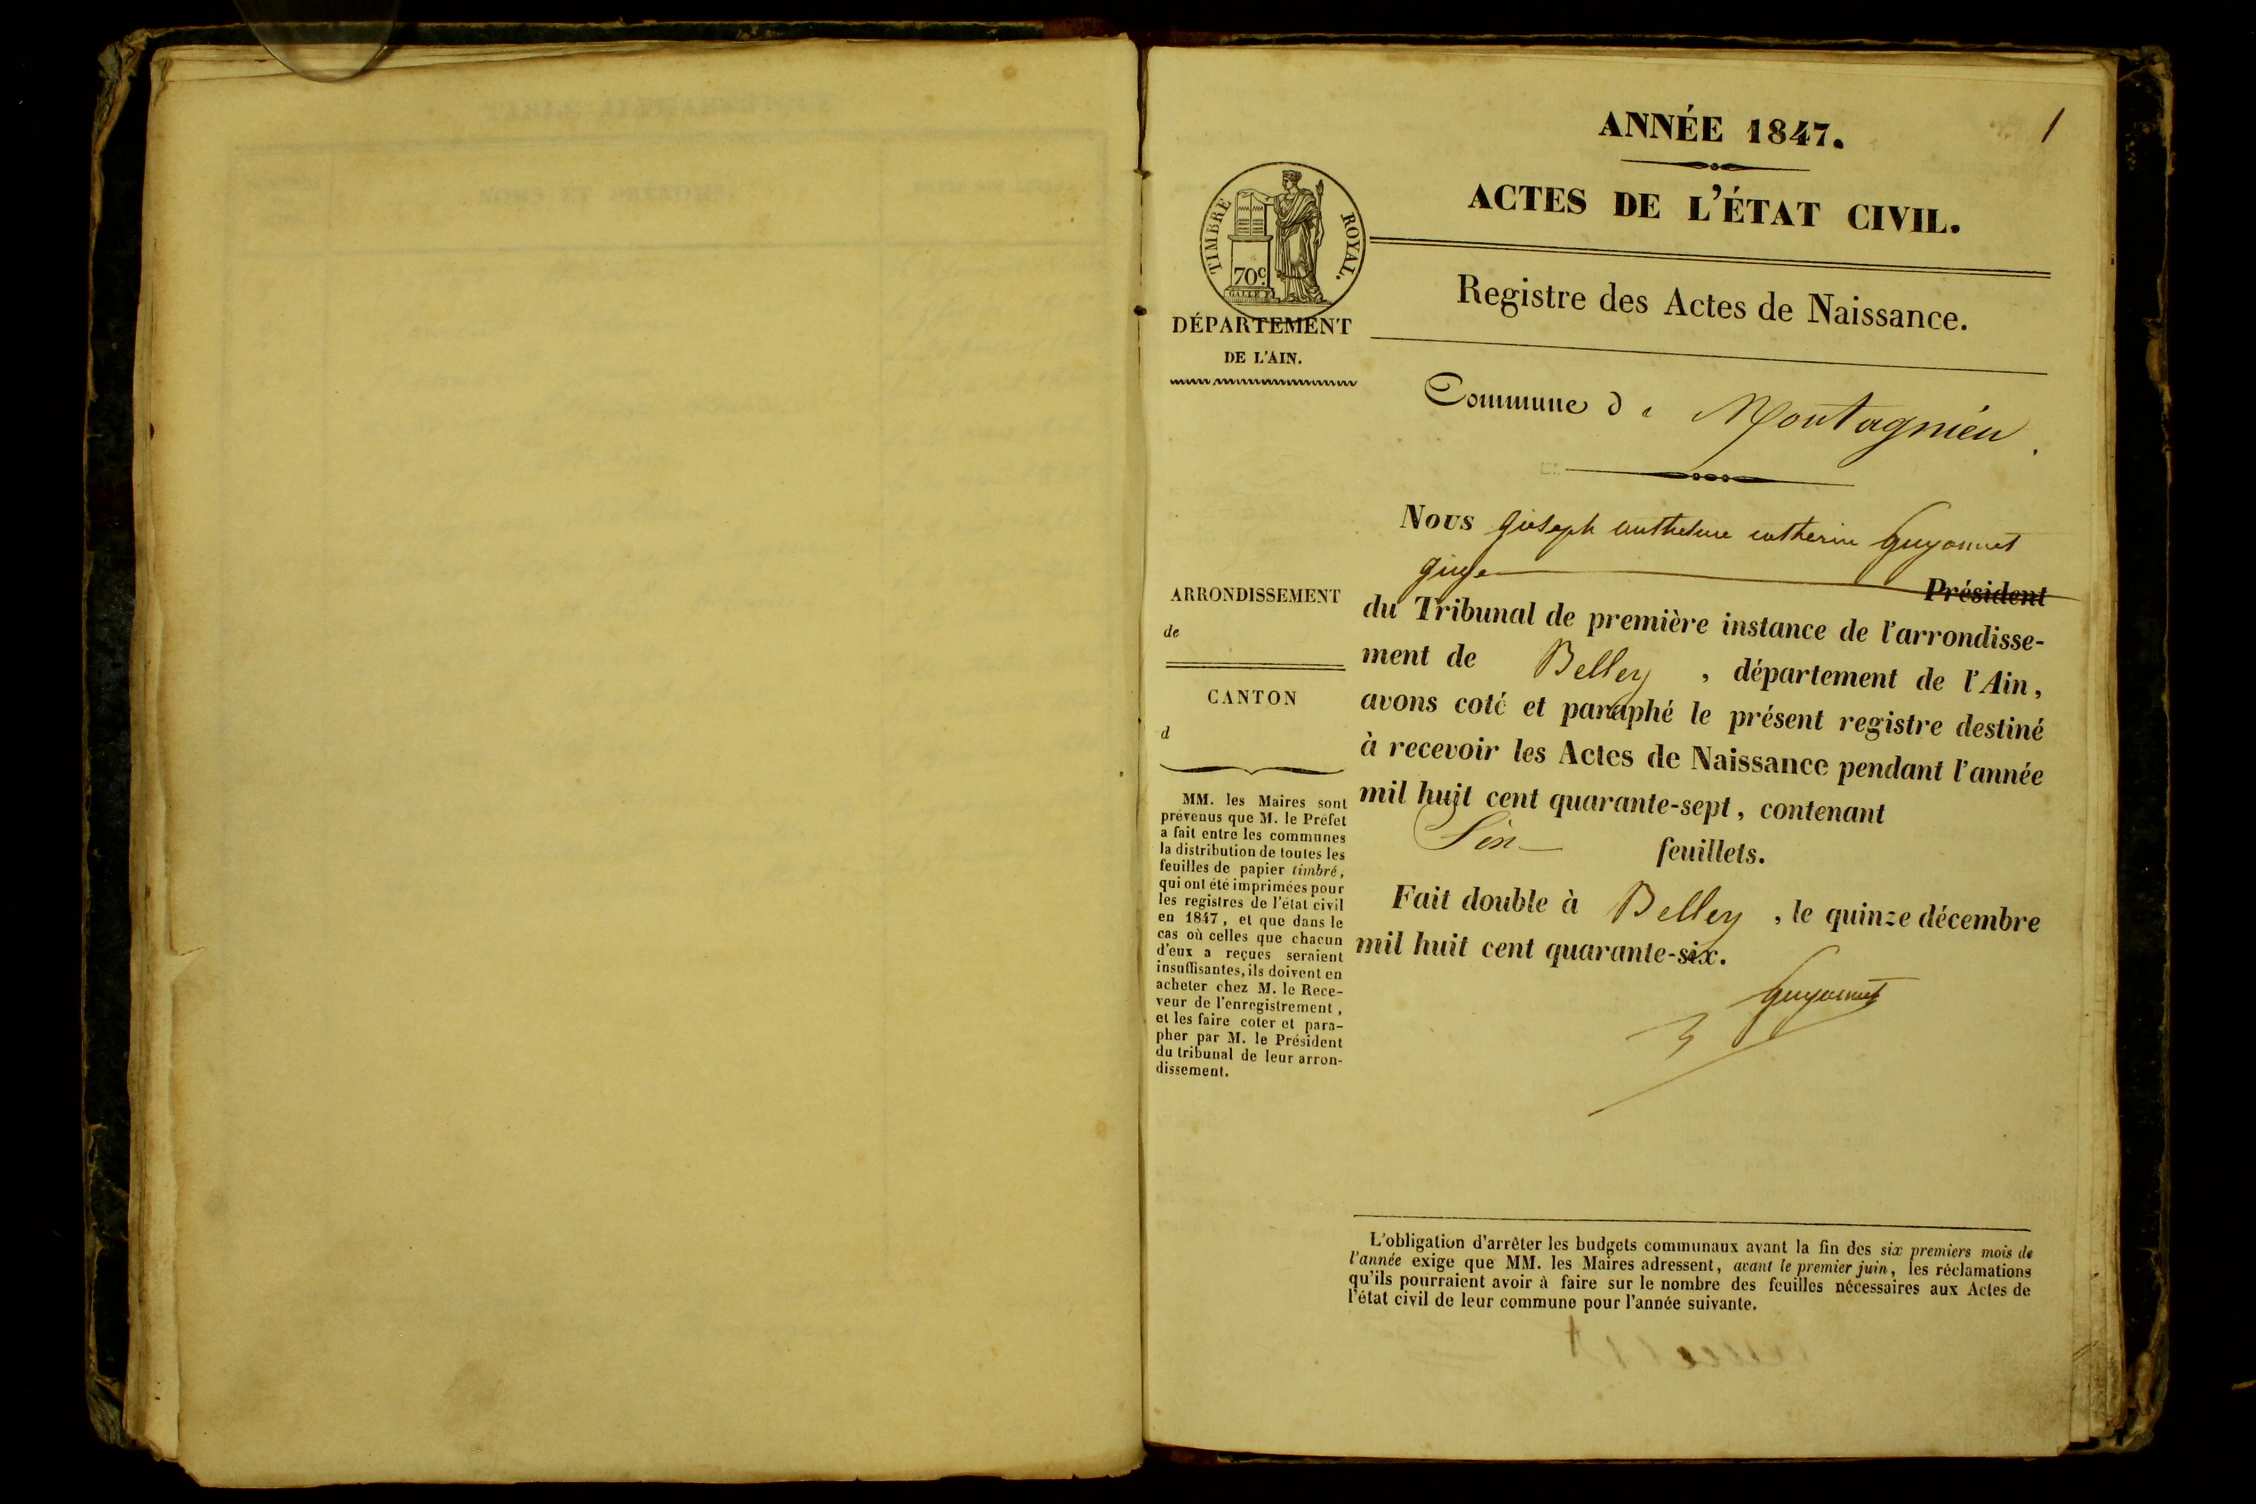 1
ANNÉE 1847.
ACTES DE L'ÉTAT CIVIL.
TIMBRE ROYAL.
70c.
GALLE F.
DÉPARTEMENT
DE L'AIN.
Registre des Actes de Naissance.
Commune de Montagnieu.
Nous Joseph anthelme catherin Guyonnet
juge Président
du Tribunal de première instance de l'arrondisse-
ment de Belley, département de l'Ain,
avons coté et paraphé le présent registre destiné
à recevoir les Actes de Naissance pendant l'année
mil huit cent quarante-sept, contenant
Six feuillets.
Fait double à Belley, le quinze décembre
mil huit cent quarante-six.
Guyonnet
ARRONDISSEMENT
de
CANTON
d
MM. les Maires sont
prévenus que M. le Préfet
a fait entre les communes
la distribution de toutes les
feuilles de papier timbré,
qui ont été imprimées pour
les registres de l'état civil
en 1847, et que dans le
cas où celles que chacun
d'eux a reçues seraient
insuffisantes, ils doivent en
acheter chez M. le Rece-
veur de l'enregistrement,
et les faire coter et para-
pher par M. le Président
du tribunal de leur arron-
dissement.
L'obligation d'arrêter les budgets communaux avant la fin des six premiers mois de
l'année exige que MM. les Maires adressent, avant le premier juin, les réclamations
qu'ils pourraient avoir à faire sur le nombre des feuilles nécessaires aux Actes de
l'état civil de leur commune pour l'année suivante.